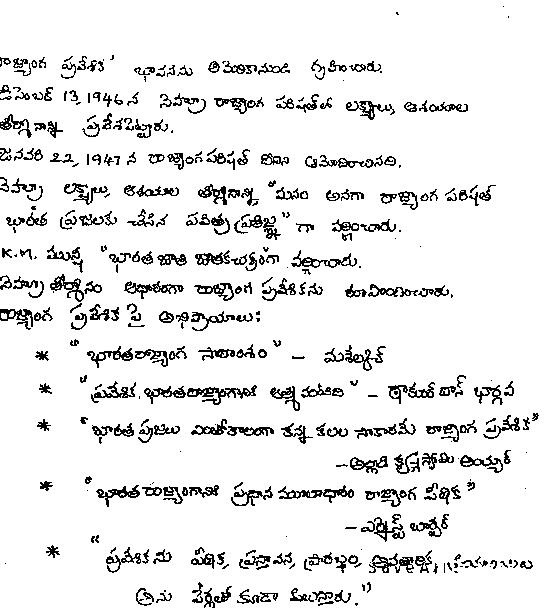 రాజ్యాంగ ప్రవేశిక' భావనను అమెరికానుండి గ్రహించారు.
డిసెంబర్ 13, 1946 న నెహ్రూ రాజ్యాంగ పరిషత్‌లో లక్ష్యాలు, ఆశయాల
తీర్మానాన్ని ప్రవేశపెట్టారు.
జనవరి 22, 1947 న రాజ్యాంగపరిషత్ దీనిని ఆమోదించినది.
నెహ్రూ లక్ష్యాలు, ఆశయాల తీర్మానాన్ని "మనం అనగా రాజ్యాంగ పరిషత్
భారత ప్రజలకు చేసిన పవిత్ర ప్రతిజ్ఞ" గా వర్ణించారు.
K.M. మున్షీ "భారత జాతి జాతకచక్రం"గా వర్ణించారు.
నెహ్రూ తీర్మానం ఆధారంగా రాజ్యాంగ ప్రవేశికను రూపొందించారు.
రాజ్యాంగ ప్రవేశిక పై అభిప్రాయాలు:
* "భారతరాజ్యాంగ సారాంశం" -
* "ప్రవేశిక, భారతరాజ్యాంగానికి ఆత్మ వంటిది" - ఠాకూర్ దాస్ భార్గవ
* "భారత ప్రజలు ఎంతోకాలంగా కన్న కలల సాకారమే రాజ్యాంగ ప్రవేశిక"
- అల్లాడి కృష్ణస్వామి అయ్యర్
* "భారత రాజ్యాంగానికి ప్రధాన మూలాధారం రాజ్యాంగ పీఠిక"
- ఎర్నెస్ట్ బార్కర్
* "ప్రవేశికను పీఠిక, ప్రస్తావన, ప్రారంభం,
అను పేర్లతో కూడా పిలుస్తారు."